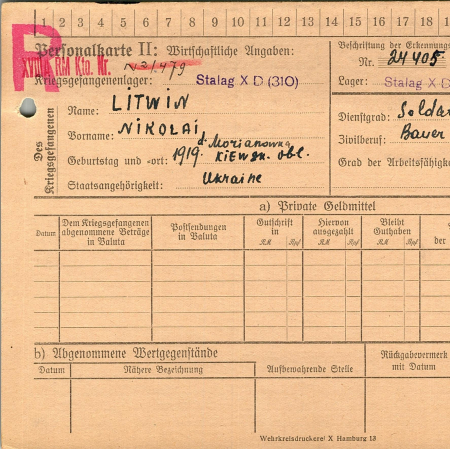 1 2 3 4 5 6 7 8 9 10 11 12 13 14 15 16 17 18 1
R
Personalkarte II: Wirtschaftliche Angaben:
XVIII A RM Kto. Nr. 31479
Kriegsgefangenenlager: Stalag X D (310)
Beschriftung der Erkennung
Nr. 24405
Lager: Stalag X D
Des Kriegsgefangenen
Name: LITWIN
Vorname: NIKOLAI
Geburtstag und -ort: 1919. d. Morianowka Kiewsk. obl.
Staatsangehörigkeit: Ukraine
Dienstgrad: Soldat
Zivilberuf: Bauer
Grad der Arbeitsfähigk
a) Private Geldmittel
Datum
Dem Kriegsgefangenen abgenommene Beträge in Valuta
Postsendungen in Valuta
Gutschrift in RM Rpf
Hiervon ausgezahlt RM Rpf
Bleibt Guthaben RM Rpf
der
b) Abgenommene Wertgegenstände
Datum Nähere Bezeichnung Aufbewahrende Stelle
Rückgabevermerk mit Datum
Wehrkreisdruckerei X Hamburg 13